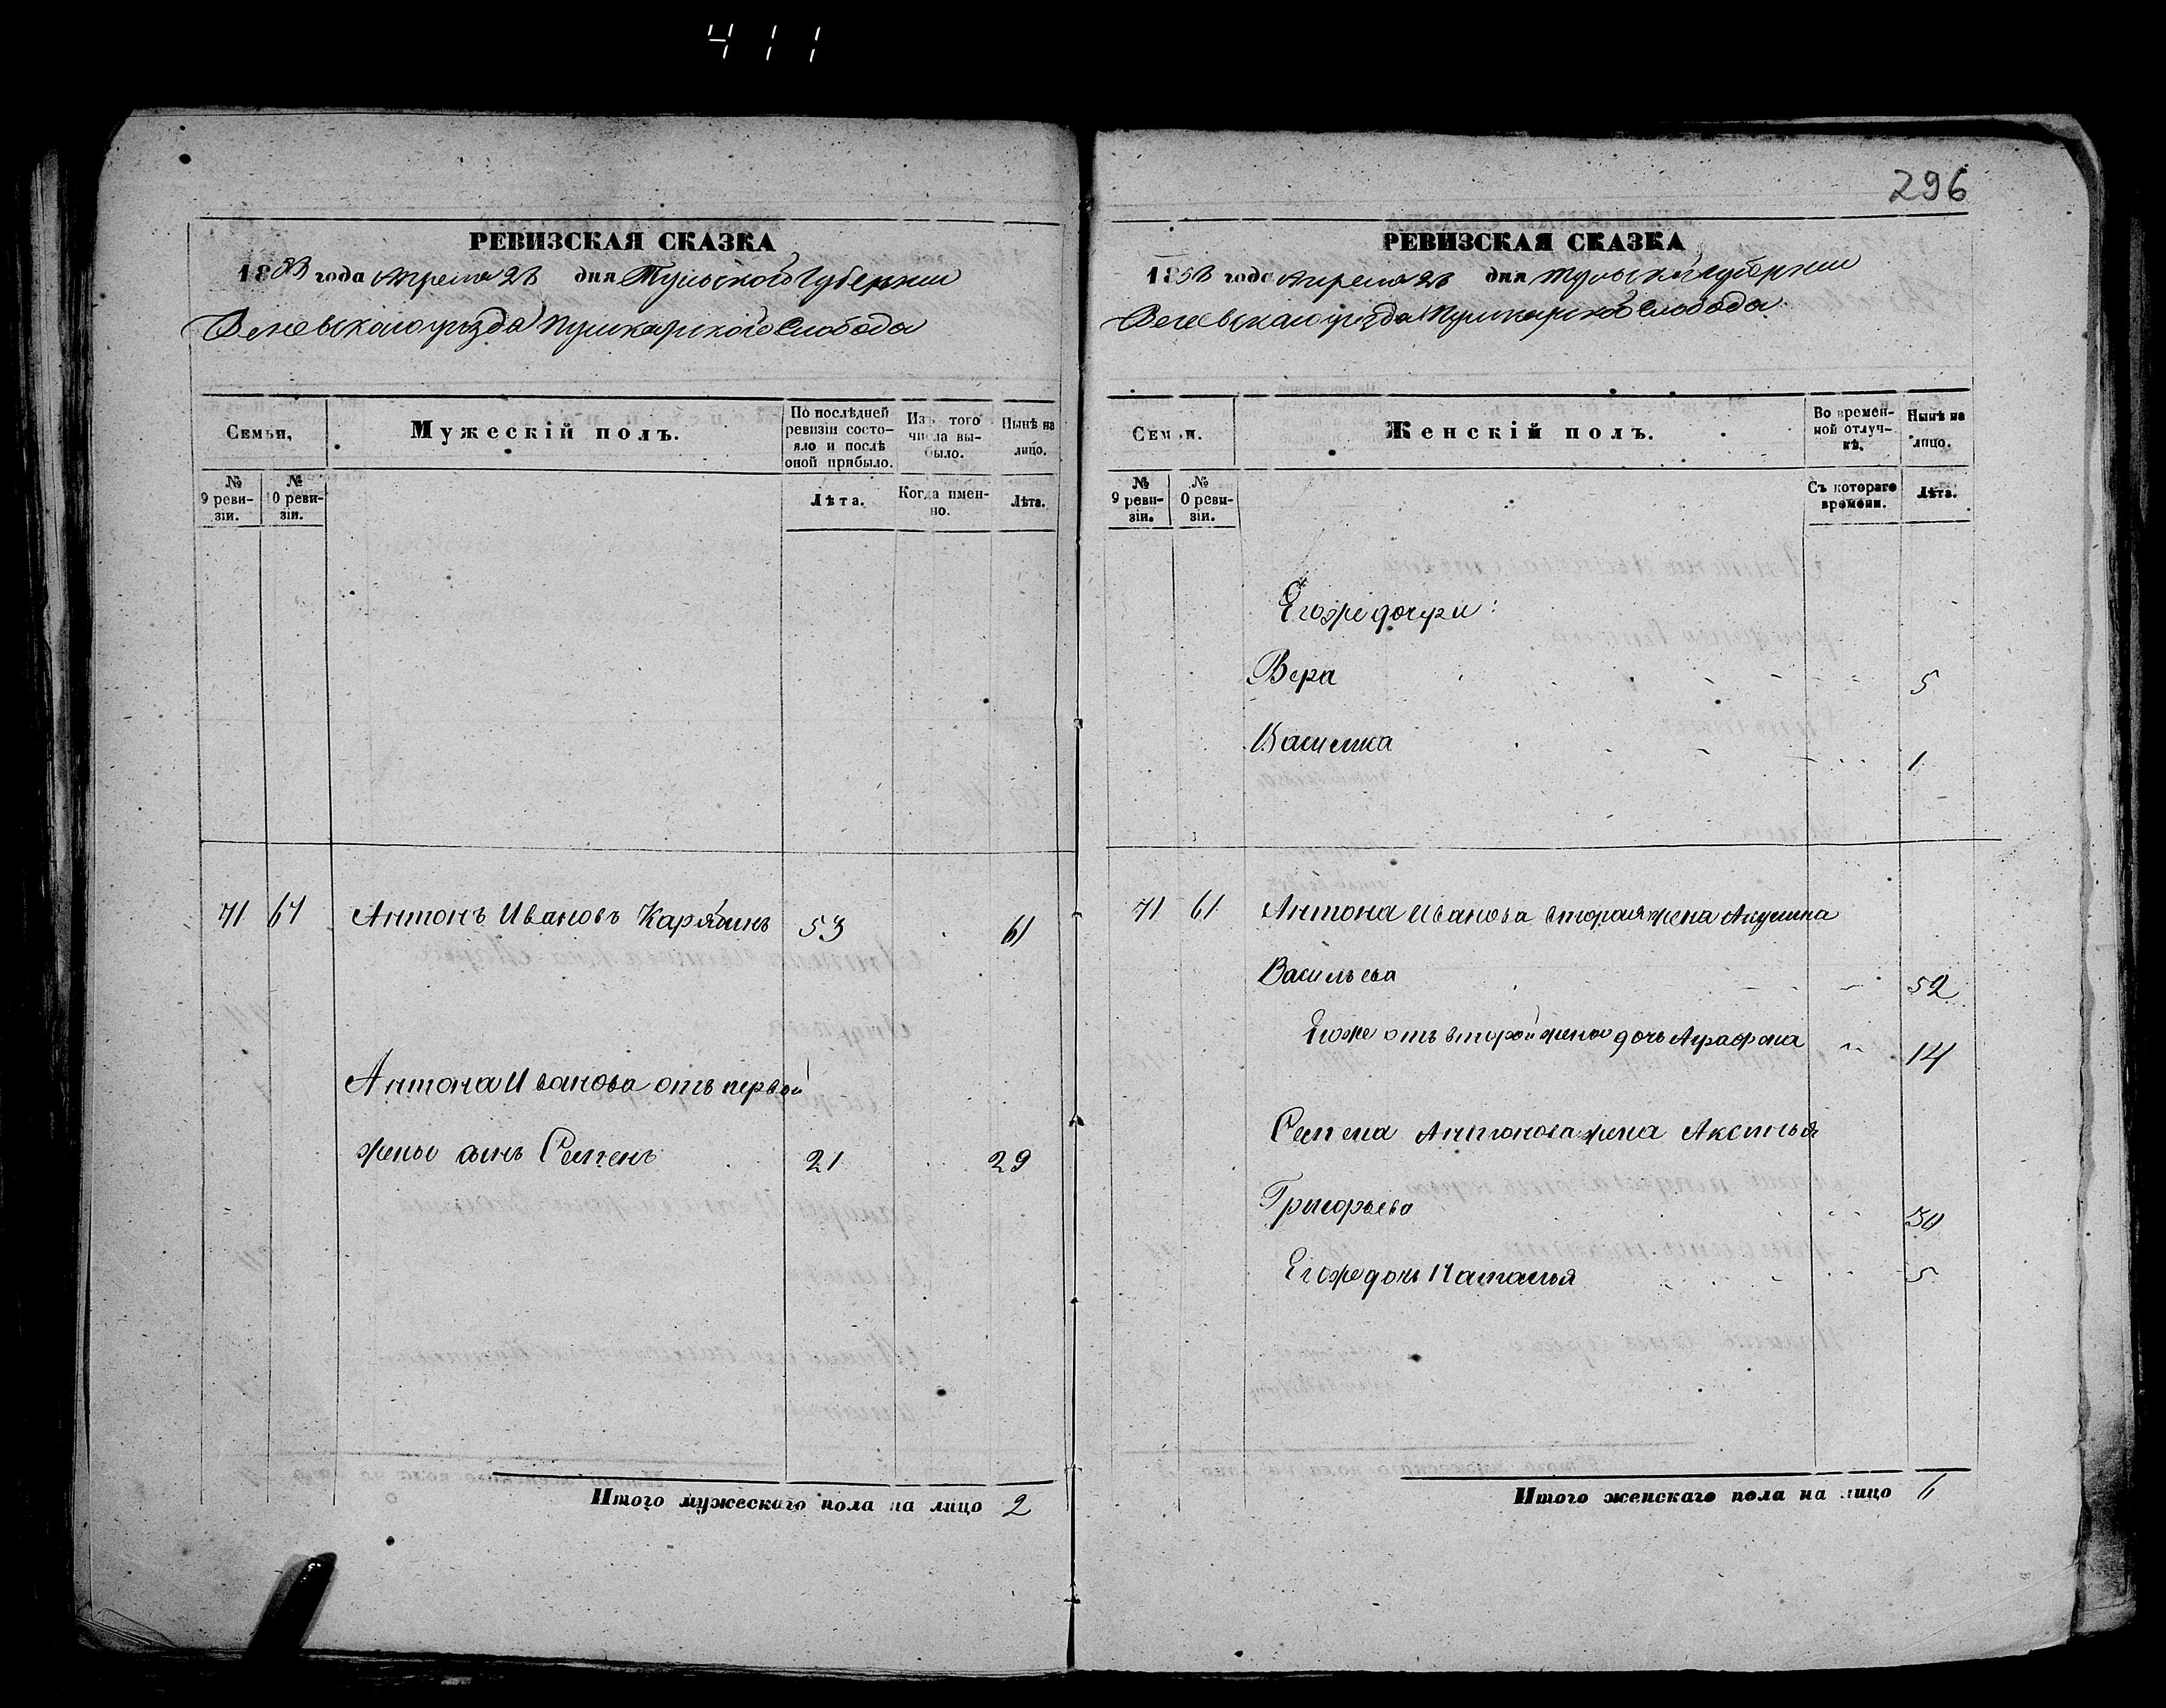 411
296
РЕВИЗСКАЯ СКАЗКА
1858 года Апреля 28 дня Тульской Губернии
Веневского уезда Пушкарской Слободы
Семьи,
Мужескій полъ.
По послѣдней ревизіи состояло и послѣ оной прибыло.
Изъ того числа выбыло.
Нынѣ на лицо.
№ 9 ревизіи.
№ 10 ревизіи.
Лѣта.
Когда именно.
Лѣта.
71 61 Антонъ Ивановъ 53 61
Антона Иванова отъ первой
жены сынъ Семенъ 21 29
Итого мужескаго пола на лицо 2
РЕВИЗСКАЯ СКАЗКА
1858 года Апреля 28 дня Тульской Губернии
Веневскаго уезда Пушкарской Слободы
Семьи.
Женскій полъ.
Во временной отлучкѣ.
Нынѣ на лицо.
№ 9 ревизіи.
№ 10 ревизіи.
Съ котораго времени.
Лѣта.
Его же дочери:
Вера 5
Василиса 1
71 61 Антона Иванова вторая жена Акулина
Васильева 52
Его же отъ второй жены дочь Аграфена 14
Семена Антонова жена Аксинья
Григорьева 30
Его же дочь Наталья 5
Итого женскаго пола на лицо 6